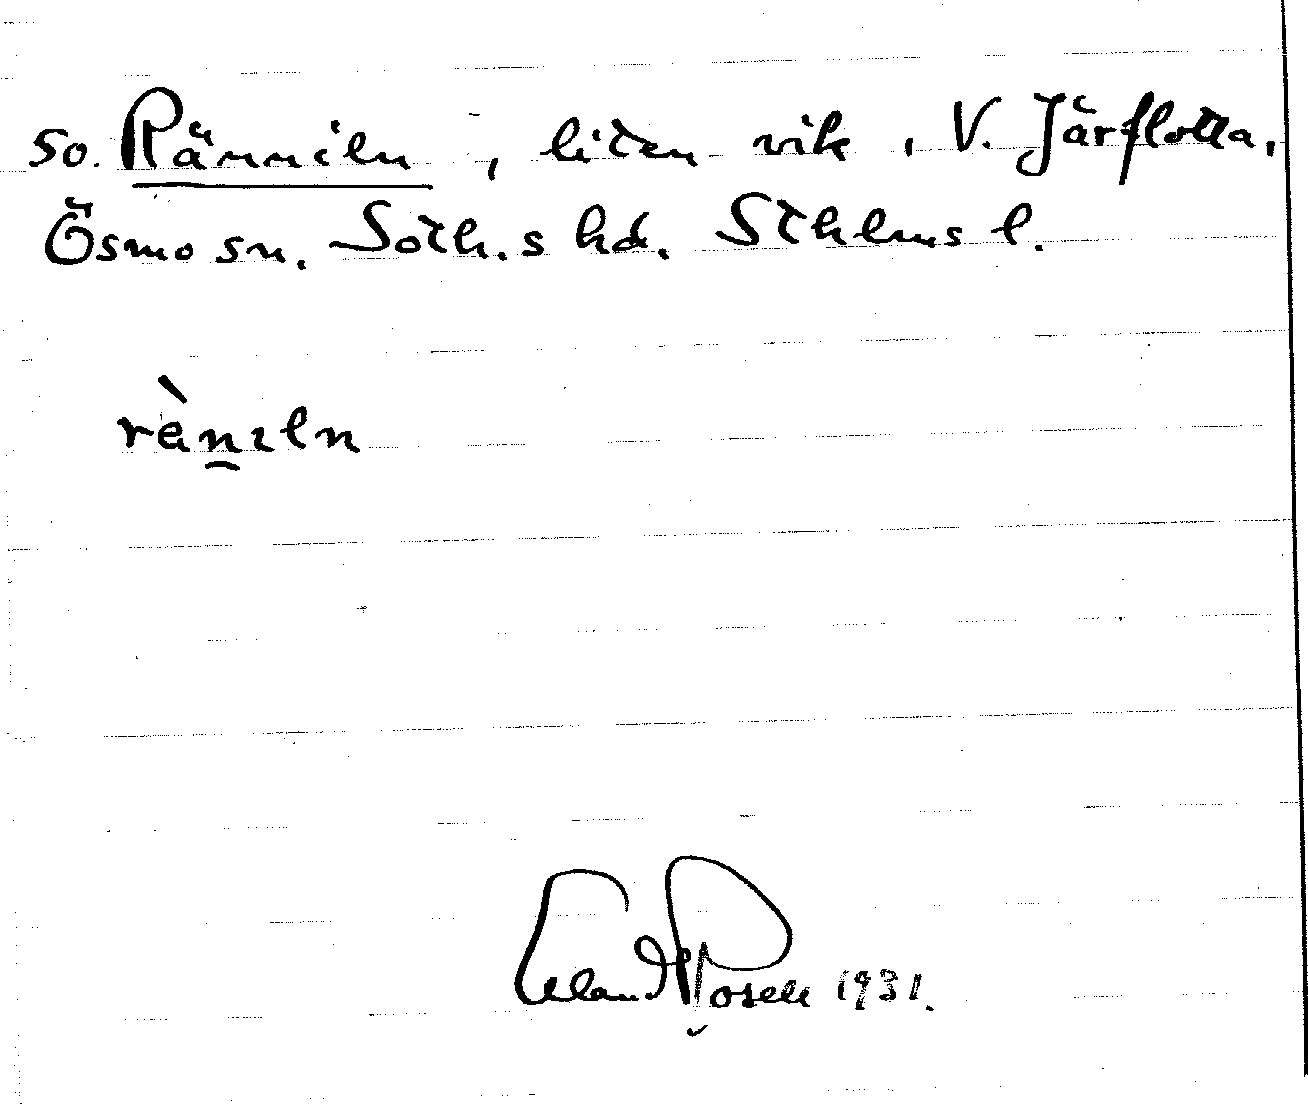 50. Ränniln, liten vik i V. Järflotta,
Ösmo sn. Soth.s hd. Sthlms l.
rèn̲ıln
Erland Rosell 1931.